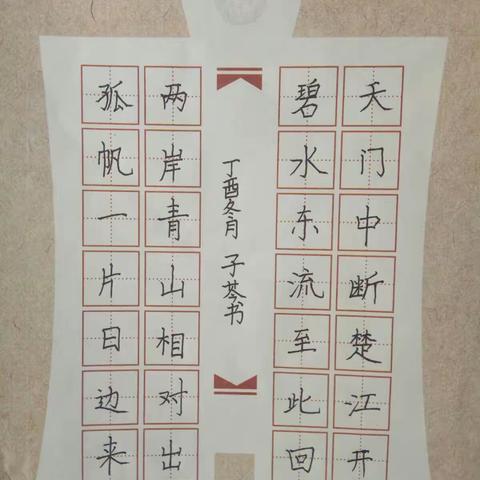 天门中断楚江开
碧水东流至此回
两岸青山相对出
孤帆一片日边来
丁酉冬月 子书